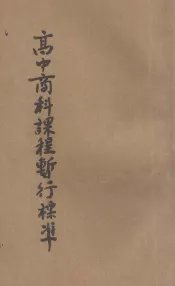 高中商科課程暫行標準